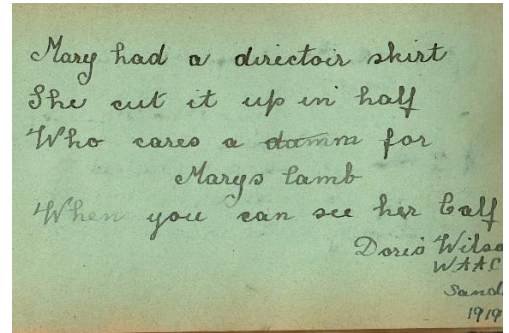 Mary had a directoir skirt
She cut it up in half
Who cares a damm for
Marys lamb
When you can see her Calf
Doris Wilso
WAAC
Sand
1919